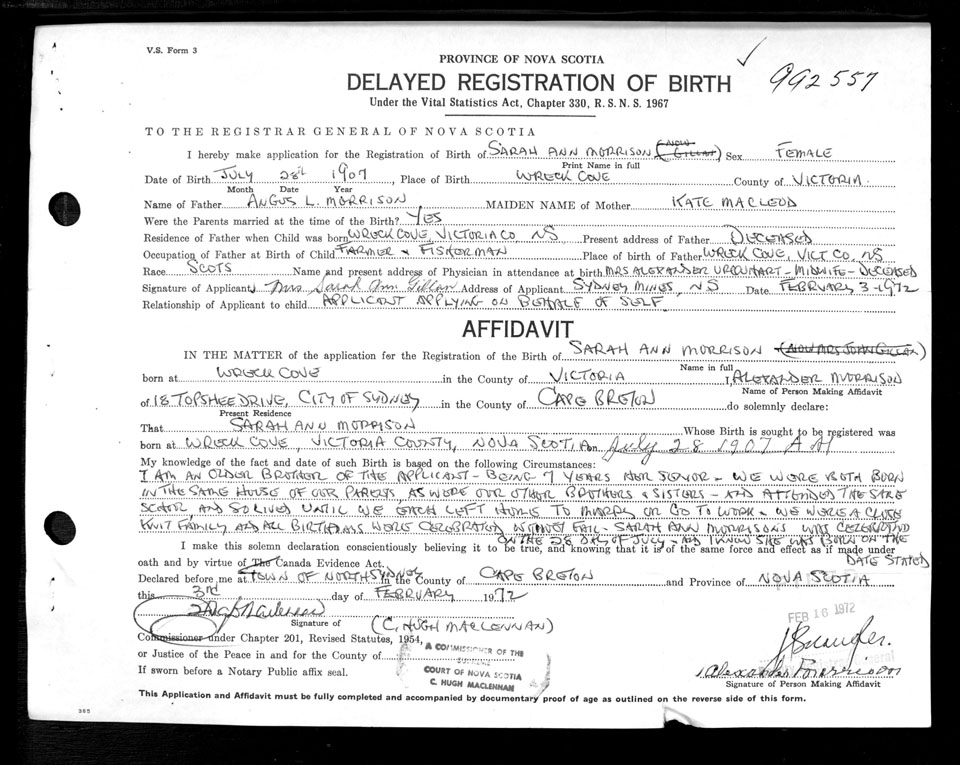 V.S. Form 3
PROVINCE OF NOVA SCOTIA
992557
DELAYED REGISTRATION OF BIRTH
Under the Vital Statistics Act, Chapter 330, R.S.N.S. 1967
TO THE REGISTRAR GENERAL OF NOVA SCOTIA
I hereby make application for the Registration of Birth of SARAH ANN MORRISON (NOW GILLAN) Sex FEMALE
Print Name in full
Date of Birth JULY 28th 1907, Place of Birth WRECK COVE County of VICTORIA.
Month Date Year
Name of Father ANGUS L. MORRISON MAIDEN NAME of Mother KATE MACLEOD
Were the Parents married at the time of the Birth? YES
Residence of Father when Child was born WRECK COVE, VICTORIA CO NS, Present address of Father DECEASED
Occupation of Father at Birth of Child FARMER & FISHERMAN Place of birth of Father WRECK COVE, VICT CO, NS
Race SCOTS Name and present address of Physician in attendance at birth MRS ALEXANDER URQUHART - MIDWIFE - DECEASED
Signature of Applicant Mrs Sarah Ann Gillan Address of Applicant SYDNEY MINES, NS Date FEBRUARY 3 - 1972
Relationship of Applicant to child APPLICANT APPLYING ON BEHALF OF SELF
AFFIDAVIT
IN THE MATTER of the application for the Registration of the Birth of SARAH ANN MORRISON (NOW MRS JOHN GILLAN)
Name in full
born at WRECK COVE in the County of VICTORIA I, ALEXANDER MORRISON
Name of Person Making Affidavit
of 18 TOPSHEE DRIVE, CITY OF SYDNEY in the County of CAPE BRETON do solemnly declare:
Present Residence
That SARAH ANN MORRISON Whose Birth is sought to be registered was
born at WRECK COVE, VICTORIA COUNTY, NOVA SCOTIA on July 28 1907 A M
My knowledge of the fact and date of such Birth is based on the following Circumstances:
I AM AN OLDER BROTHER OF THE APPLICANT - BEING 7 YEARS HER SENIOR - WE WERE BOTH BORN
IN THE SAME HOUSE OF OUR PARENTS, AS WERE OUR OTHER BROTHERS & SISTERS - AND ATTENDED THE SAME
SCHOOL AND SO LIVED UNTIL WE EACH LEFT HOME TO MARRY OR GO TO WORK - WE WERE A CLOSE
KNIT FAMILY AND ALL BIRTHDAYS WERE CELEBRATED WITHOUT FAIL - SARAH ANN MORRISON'S WAS CELEBRATED
ON THE 28 DAY OF JULY - AND I KNOW SHE WAS BORN ON THE
DATE STATED
I make this solemn declaration conscientiously believing it to be true, and knowing that it is of the same force and effect as if made under
oath and by virtue of The Canada Evidence Act.
Declared before me at TOWN OF NORTH SYDNEY in the County of CAPE BRETON and Province of NOVA SCOTIA
this 3rd day of FEBRUARY 1972
FEB 16 1972
Signature of (C. HUGH MACLENNAN)
Commissioner under Chapter 201, Revised Statutes, 1954,
or Justice of the Peace in and for the County of
If sworn before a Notary Public affix seal.
A COMMISSIONER OF THE
SUPREME
COURT OF NOVA SCOTIA
C. HUGH MACLENNAN
Alexander Morrison
Signature of Person Making Affidavit
This Application and Affidavit must be fully completed and accompanied by documentary proof of age as outlined on the reverse side of this form.
385